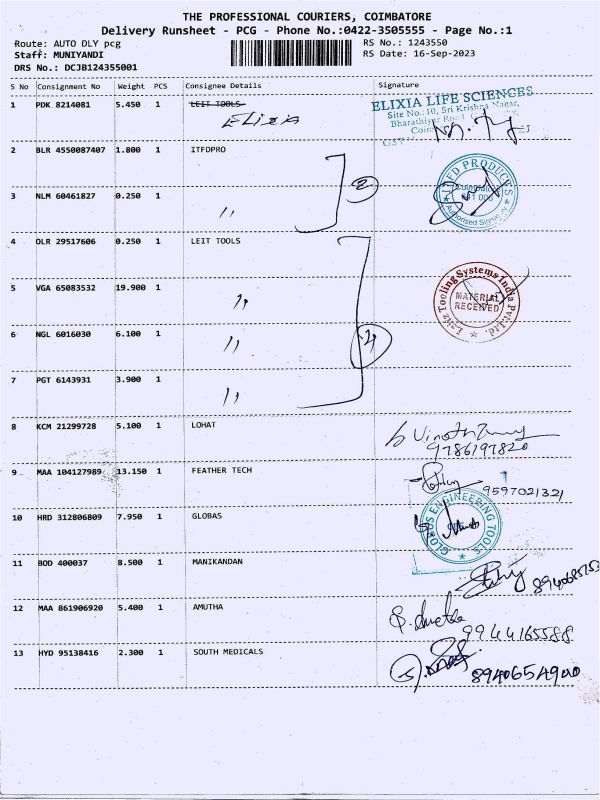 THE PROFESSIONAL COURIERS, COIMBATORE
Delivery Runsheet - PCG - Phone No.:0422-3505555 - Page No.:1
Route: AUTO DLY pcg RS No.: 1243550
Staff: MUNIYANDI RS Date: 16-Sep-2023
DRS No.: DCJB124355001
S No Consignment No Weight PCS Consignee Details Signature
1 PDK 8214081 5.450 1 LEIT TOOLS
Elixia
ELIXIA LIFE SCIENCES
Site No.:10, Sri Krishna Nagar,
2 BLR 4550087407 1.800 1 ITFDPRO
3 NLM 60461827 0.250 1 〃
2
4 OLR 29517606 0.250 1 LEIT TOOLS
5 VGA 65083532 19.900 1 〃
Leitz Tooling Systems India Pvt.Ltd.
MATERIAL
RECEIVED
6 NGL 6016030 6.100 1 〃
4
7 PGT 6143931 3.900 1 〃
8 KCM 21299728 5.100 1 LOHAT
9786197820
9 MAA 104127989 13.150 1 FEATHER TECH
9597021321
10 HRD 312806809 7.950 1 GLOBAS
GLOBUS ENGINEERING TOOLS
11 BOD 400037 8.500 1 MANIKANDAN
12 MAA 861906920 5.400 1 AMUTHA
9944165588
13 HYD 95138416 2.300 1 SOUTH MEDICALS
8940654900